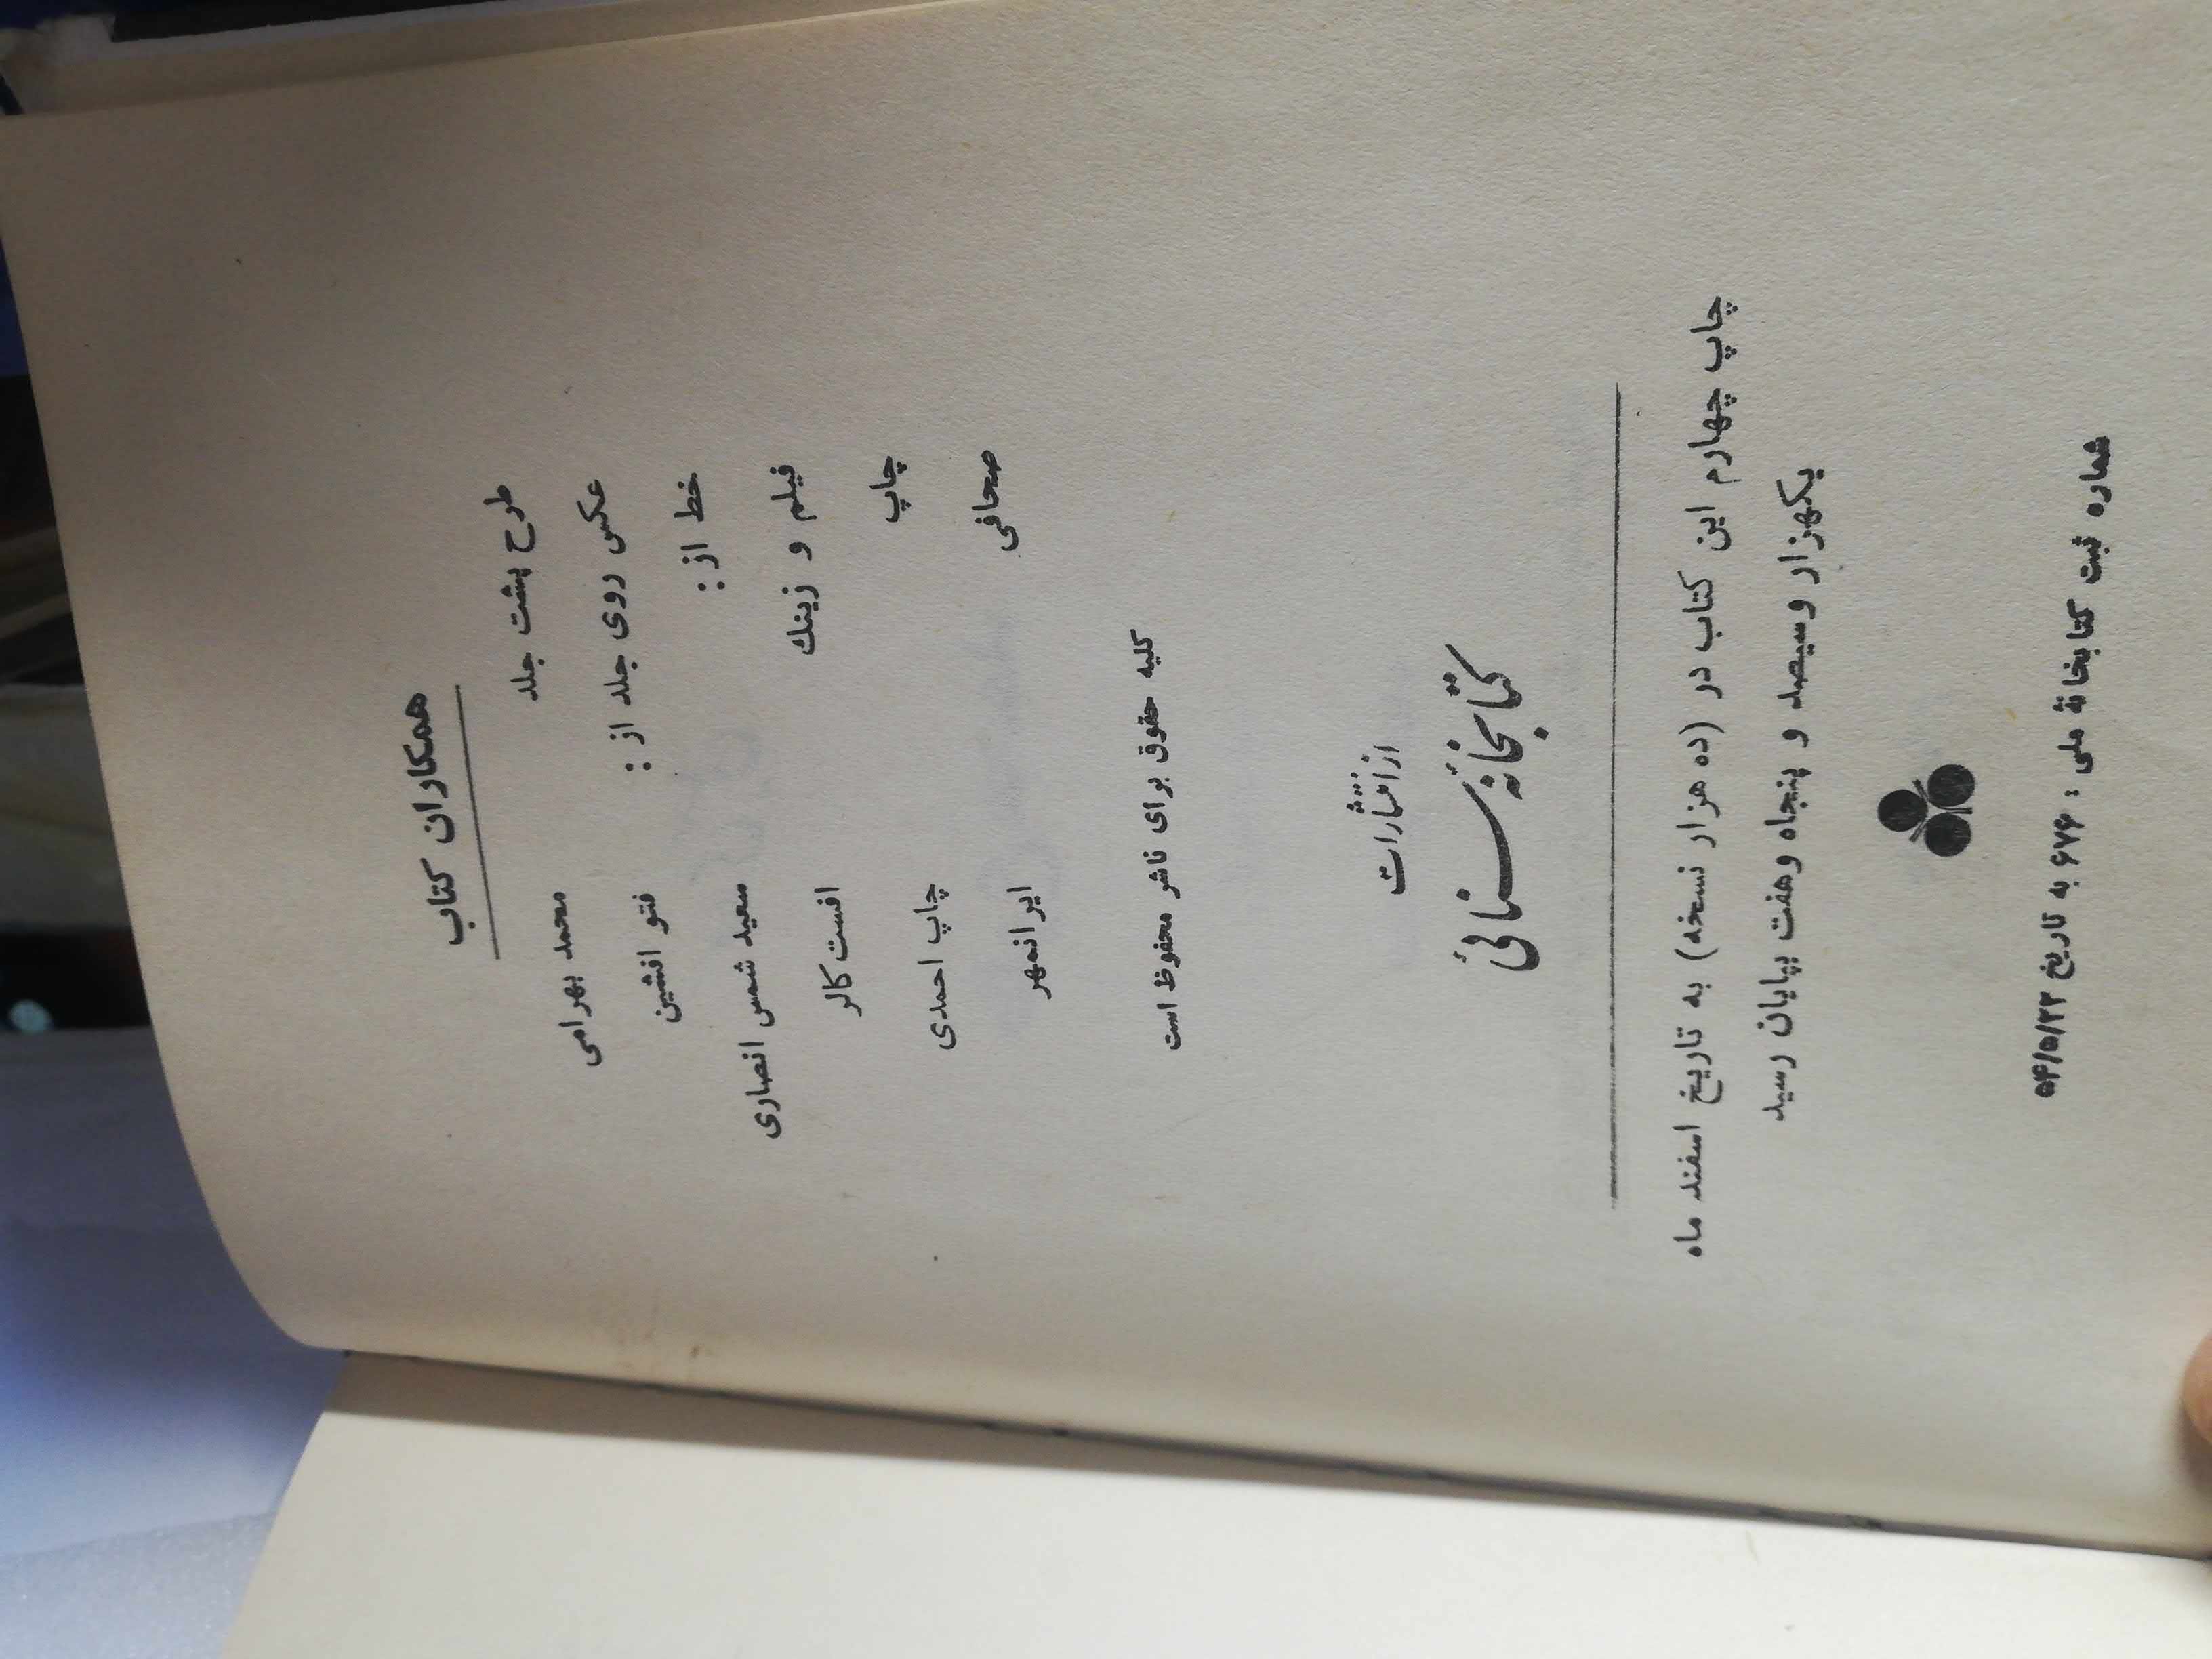 همکاران کتاب
طرح پشت جلد محمد بهرامی
عکس روی جلد از: فتو افشین
خط از: سعید شمس انصاری
فیلم و زینك افست کالر
چاپ چاپ احمدی
صحافی ایرانمهر
کلیه حقوق برای ناشر محفوظ است
از انتشارات
کتابخانه سنائی
چاپ چهارم این کتاب در (ده هزار نسخه) به تاریخ اسفند ماه
یکهزار و سیصد و پنجاه و هفت بپایان رسید
شماره ثبت کتابخانهٔ ملی: ۶۷۶ به تاریخ ۵۴/۵/۲۳